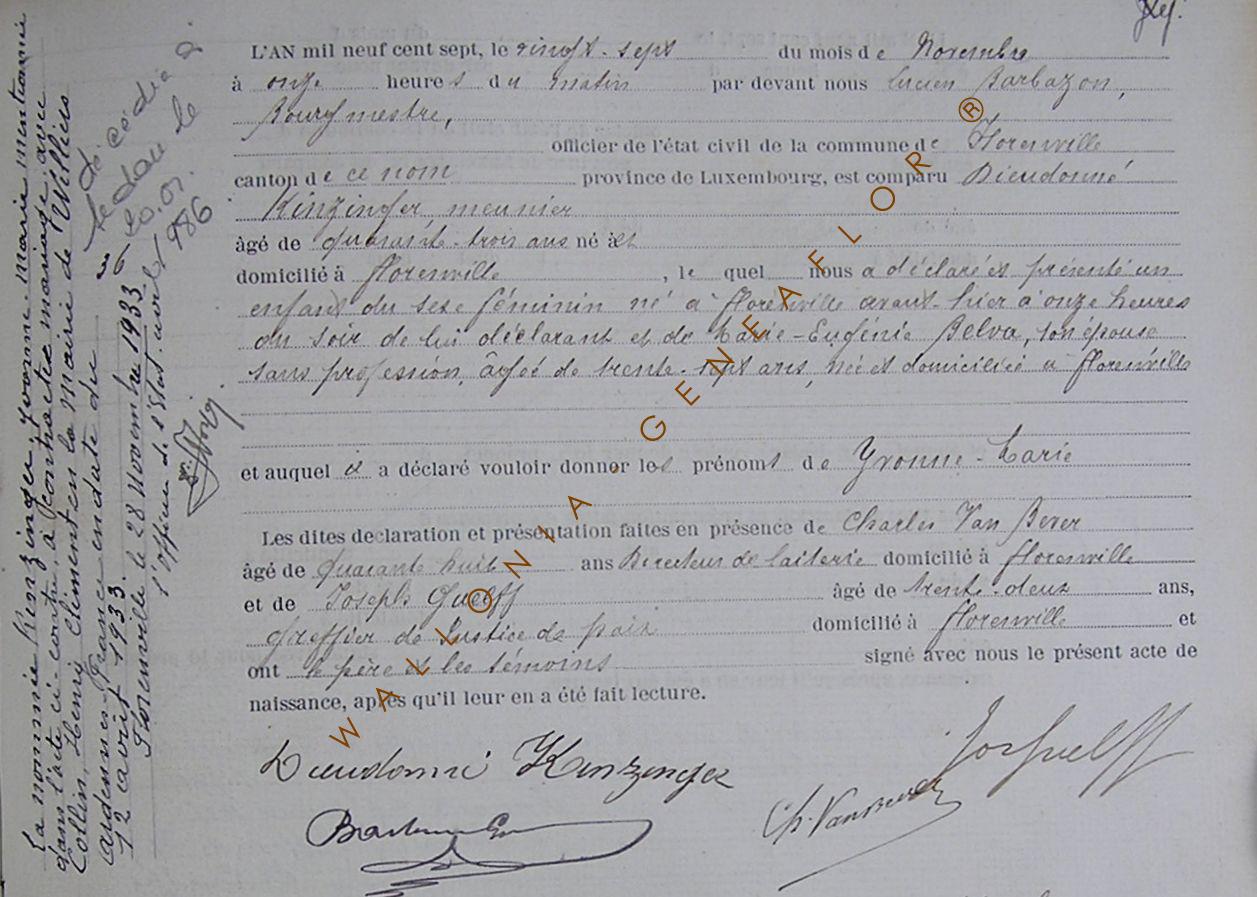 L'AN mil neuf cent sept, le vingt-sept du mois de Novembre
à onze heures du matin par devant nous Lucien Barbazon,
Bourgmestre,
officier de l'état civil de la commune de Florenville
canton de ce nom province de Luxembourg, est comparu Dieudonné
Kinzinger, meunier
âgé de quarante-trois ans né à et
domicilié à Florenville, le quel nous a déclaré et présenté un
enfant du sexe féminin né à Florenville avant-hier à onze heures
du soir de lui déclarant et de Marie-Eugénie Belva, son épouse
sans profession, âgée de trente-sept ans, née et domiciliée à Florenville
et auquel il a déclaré vouloir donner les prénoms de Yvonne-Marie
Les dites declaration et présentation faites en présence de Charles Van Bever
âgé de quarante huit ans Directeur de laiterie domicilié à Florenville
et de Joseph Guelff âgé de trente-deux ans,
greffier de Justice de paix domicilié à Florenville et
ont le père et les témoins signé avec nous le présent acte de
naissance, après qu'il leur en a été fait lecture.
Dieudonné Kinzinger
Jos Guelff
Ch. Van Bever
La nommée Kinzinger, Yvonne-Marie mentionnée
dans l'acte ci-contre, a contracté mariage avec
Collin, Henri Clément en la Mairie de Villers
Ardennes-France en date du
12 avril 1933.
Florenville le 28 Novembre 1933
l'officier de l'Etat-civil
décédée à
Sedan le
20.01.
1986
WALLONIA GENEAFLOR ®